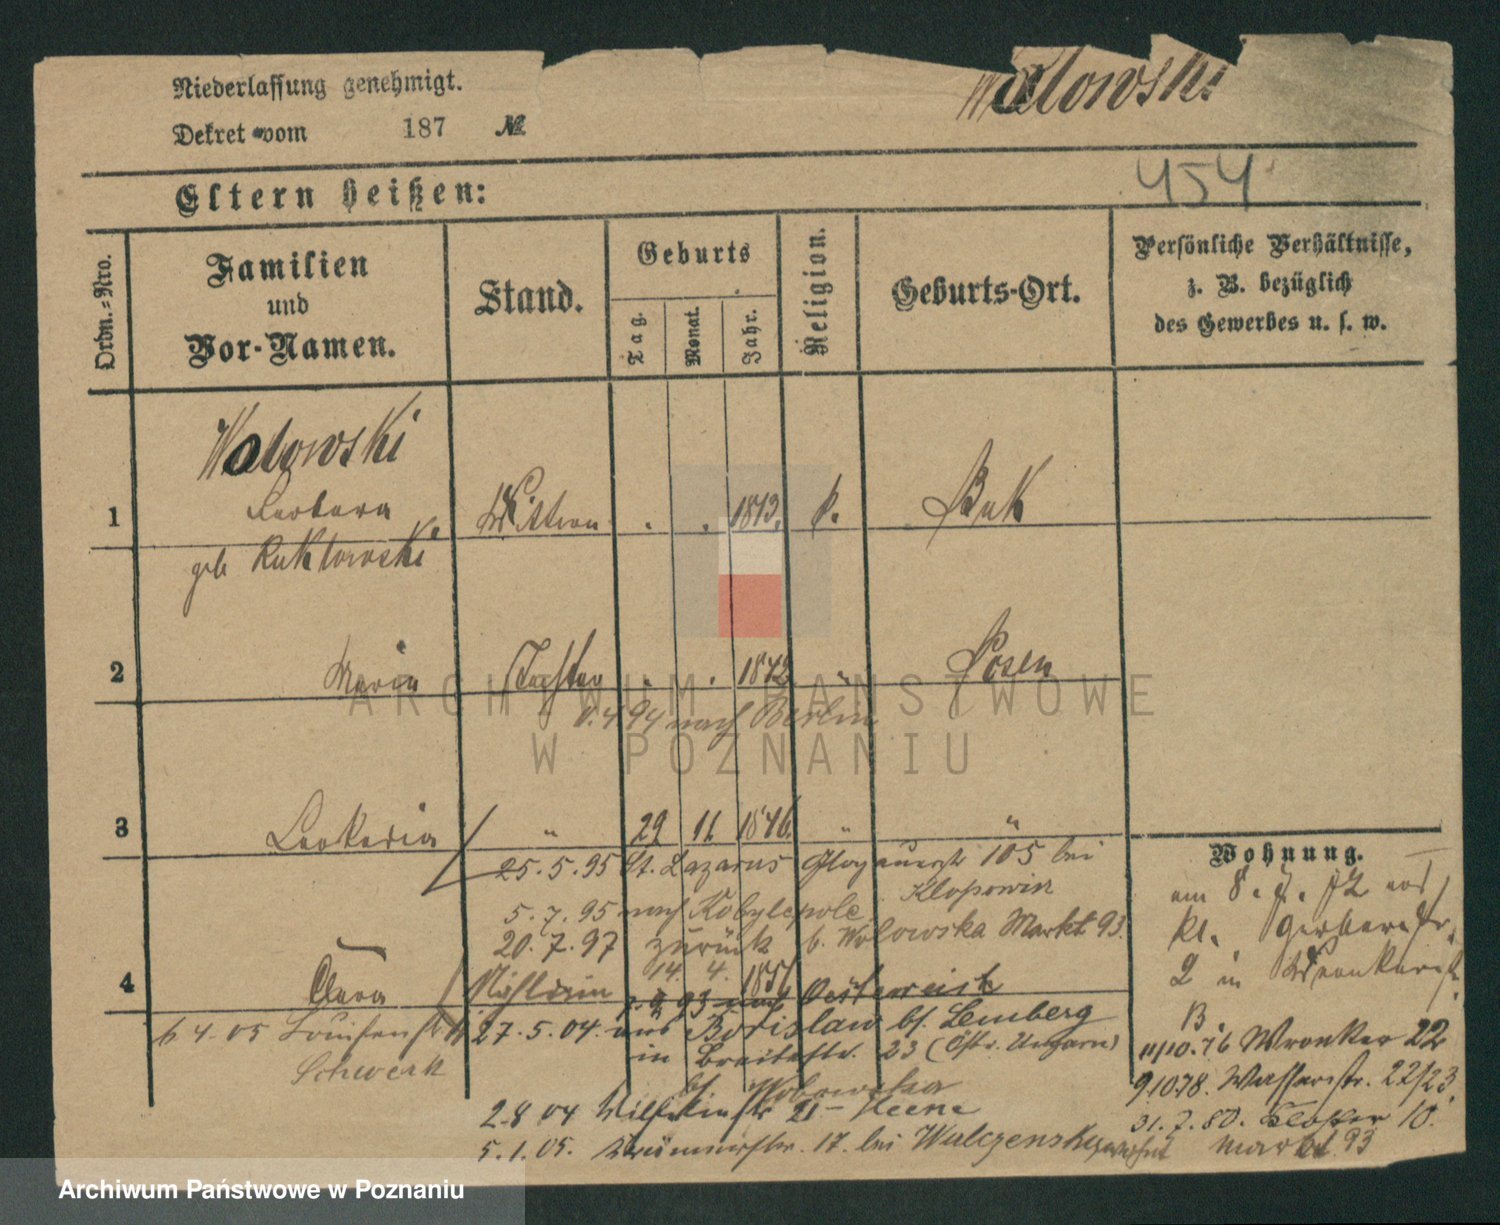 Niederlassung genehmigt.
Dekret vom 187 №
Wolowski
454
Eltern heißen:
Ordn.-Nro.
Familien
und
Vor-Namen.
Stand.
Geburts
Tag.
Monat.
Jahr.
Religion.
Geburts-Ort.
Persönliche Verhältnisse,
z. B. bezüglich
des Gewerbes u. s. w.
Wolowski
1 Barbara Wittwe . . 1813. k. Buk
geb
2 Maria Tochter . . 1842 " Posen
94 nach Berlin
3 Leokadia " 29 11 1846. " "
25.5.95 St. Lazarus Glogauerstr 105 bei
Klopowin
5.7.95 nach Kobylepole
20.7.97 zurück b. Wolowska Markt 93.
4 Clara 14. 4. 1851
93 nach Oesterreich
27.5.04. aus Borislaw bf. Lemberg
in Breitestr. 23 (Östr. Ungarn)
bf. Wolowska
6 4.05 Louisenstr
Schwerk
2.8 04 21 – Heene
5.1.05. 17. bei Walczensky
Wohnung.
am 8. 7. 72 aus
kl. Gerberstr.
2 in Wronkerstr.
B.
11/10.76 Wronker 22
9.10.78. Wasserstr. 22/23.
31.7.80. Kloster 10.
Markt 93
ARCHIWUM PAŃSTWOWE
W POZNANIU
Archiwum Państwowe w Poznaniu